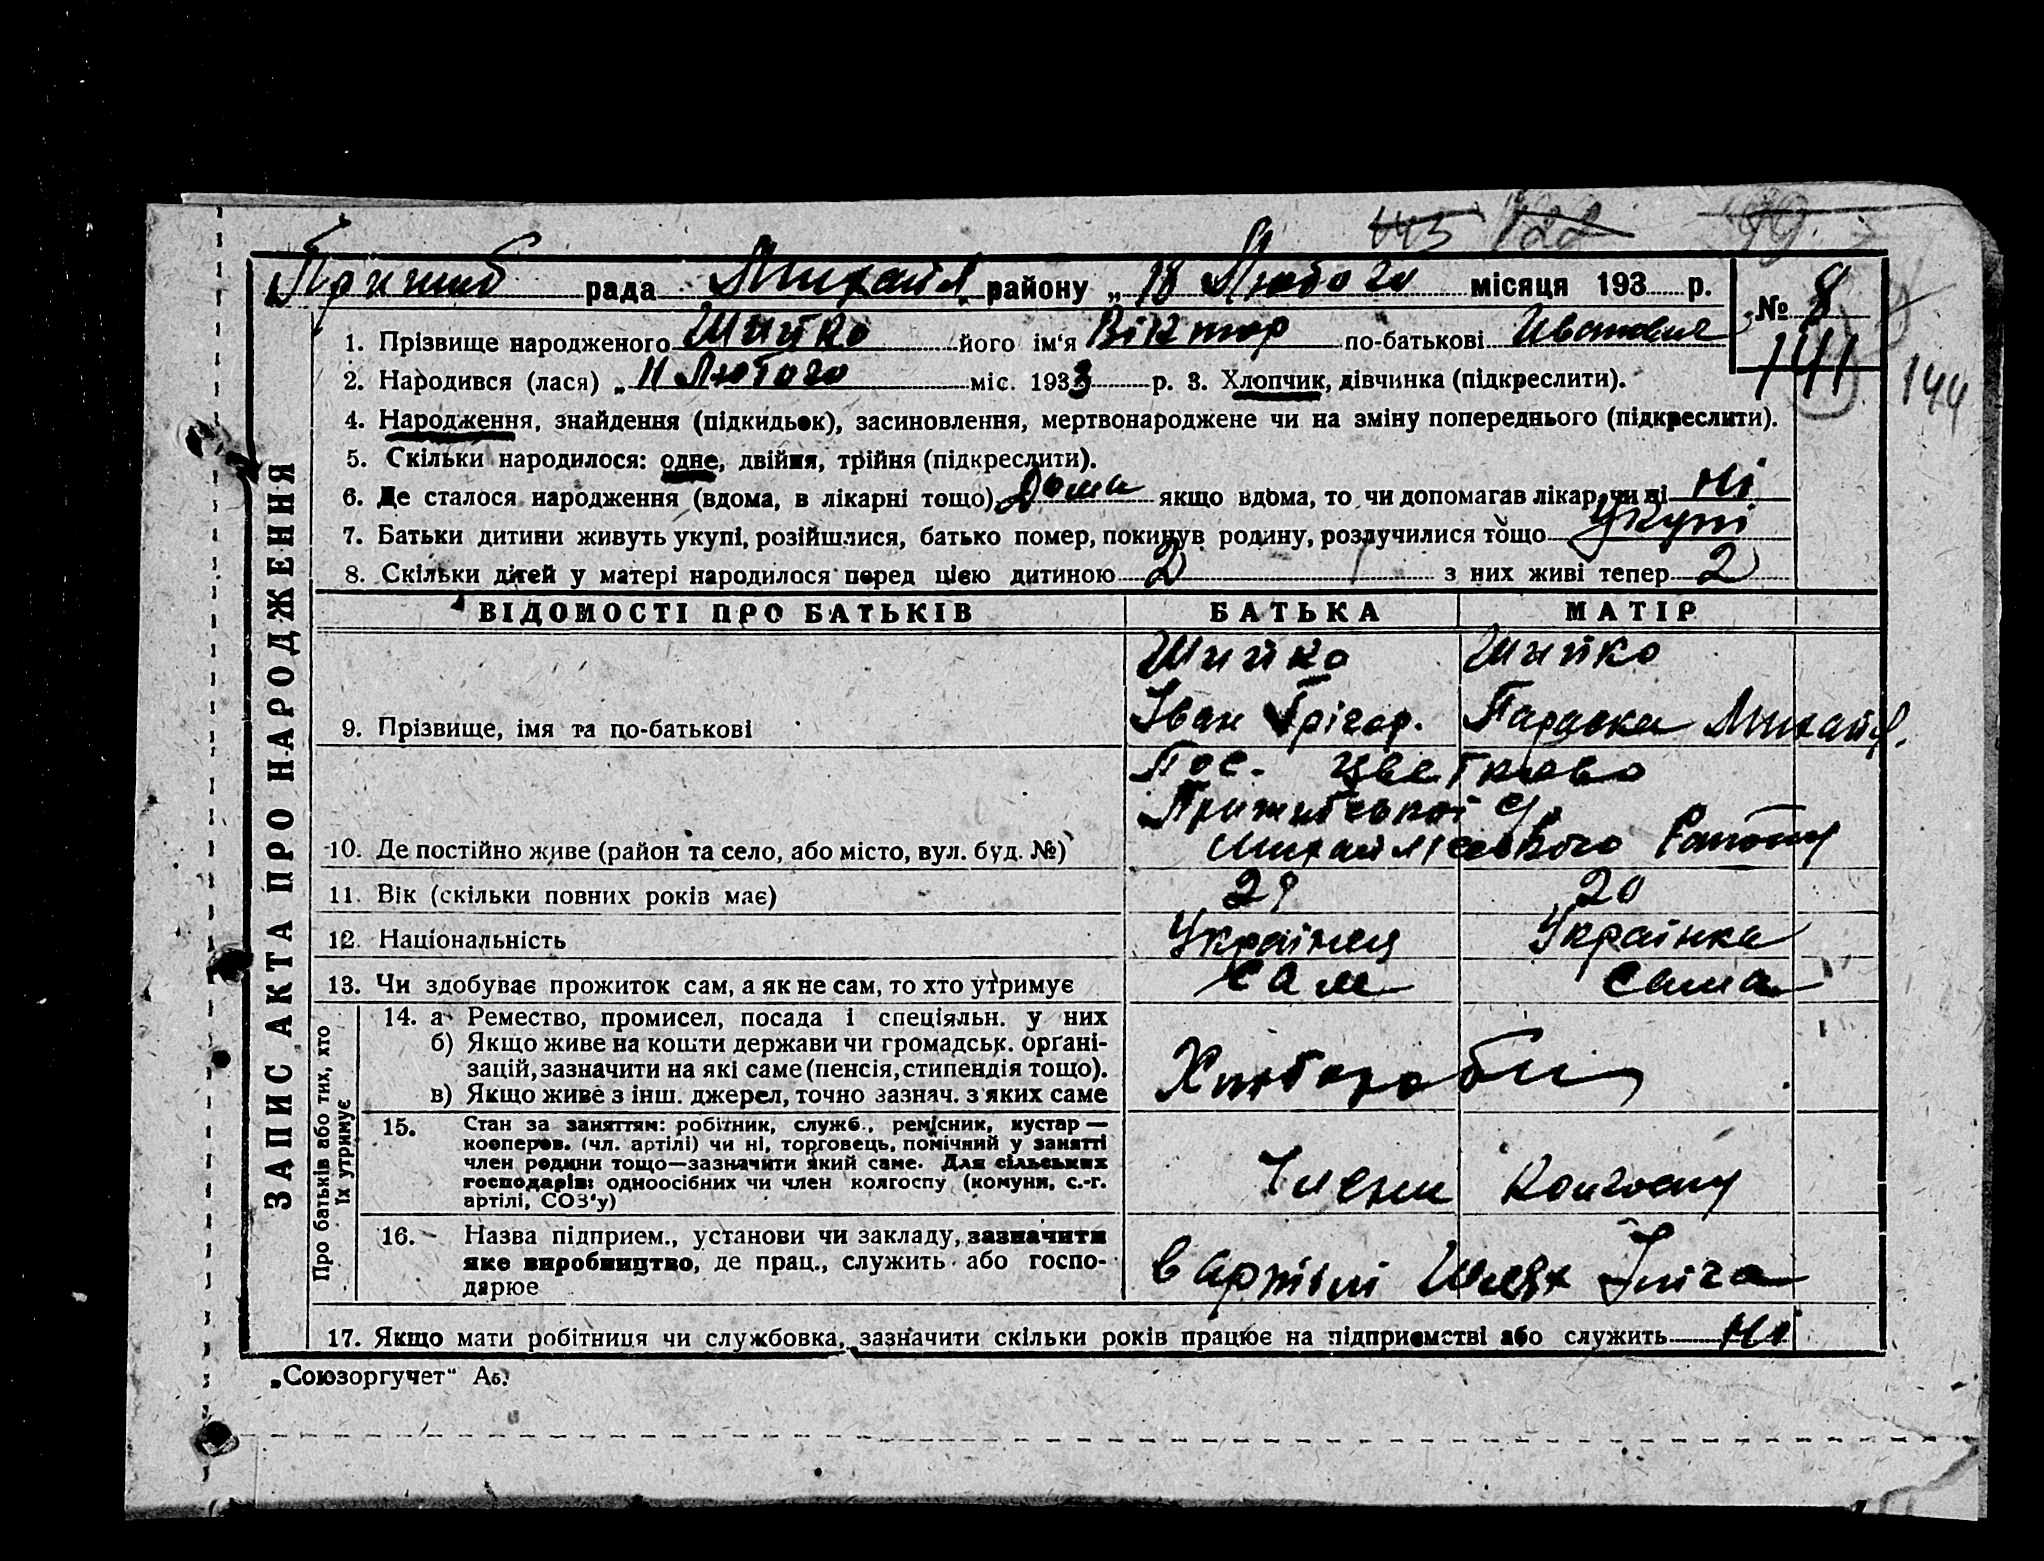 143 122 99
Пришиб рада Михайл. району „ 18 Лютого місяця 193 р. № 8
1. Прізвище народженого Шийко його ім‘я Віктор по-батькові Иванович 141
2. Народився (лася) „ 11 Лютого міс. 1933 р. 3. Хлопчик, дівчинка (підкреслити). 144
4. Народження, знайдення (підкидьок), засиновлення, мертвонароджене чи на зміну попереднього (підкреслити).
5. Скільки народилося: одне, двійня, трійня (підкреслити).
6. Де сталося народження (вдома, в лікарні тощо) Дома якщо вдома, то чи допомагав лікар, чи ні Ні
7. Батьки дитини живуть укупі, розійшлися, батько помер, покинув родину, розлучилися тощо Укупі
8. Скільки дітей у матері народилося перед цією дитиною 2 з них живі тепер 2
ЗАПИС АКТА ПРО НАРОДЖЕННЯ
ВІДОМОСТІ ПРО БАТЬКІВ БАТЬКА МАТІР
Шийко Шийко
9. Прізвище, імя та по-батькові Іван Грігор. Параска Михайл.
Пос. Цветково
Пришибської с/р.
10. Де постійно живе (район та село, або місто, вул. буд. №) Михайлівського Району
11. Вік (скільки повних років має) 29 20
12. Національність Українец Українка
13. Чи здобуває прожиток сам, а як не сам, то хто утримує Сам Сама
Про батьків або тих, хто
їх утримує
14. а Ремество, промисел, посада і спеціяльн. у них
б) Якщо живе на кошти держави чи громадськ. орґані-
зацій, зазначити на які саме (пенсія, стипендія тощо).
в) Якщо живе з інш. джерел, точно зазнач. з яких саме
Хліборобы
15. Стан за заняттям: робітник, служб., ремісник, кустар —
кооперов. (чл. артілі) чи ні, торговець, помічний у занятті
член родини тощо—зазначити який саме. Для сільських
господарів: одноосібних чи член колгоспу (комуни, с.-г.
артілі, СОЗ‘у)
Члени Колгоспу
16. Назва підприєм., установи чи закладу, зазначити
яке виробництво, де прац., служить або госпо-
дарює
в артілі Шлях Ілліча
17. Якщо мати робітниця чи службовка, зазначити скільки років працює на підприємстві або служить Ні
„Союзоргучет“ Аб.